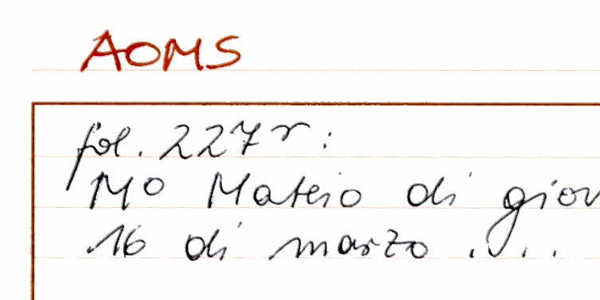 AOMS
fol. 227r:
Mo Mateio di giov
16 di marzo ....